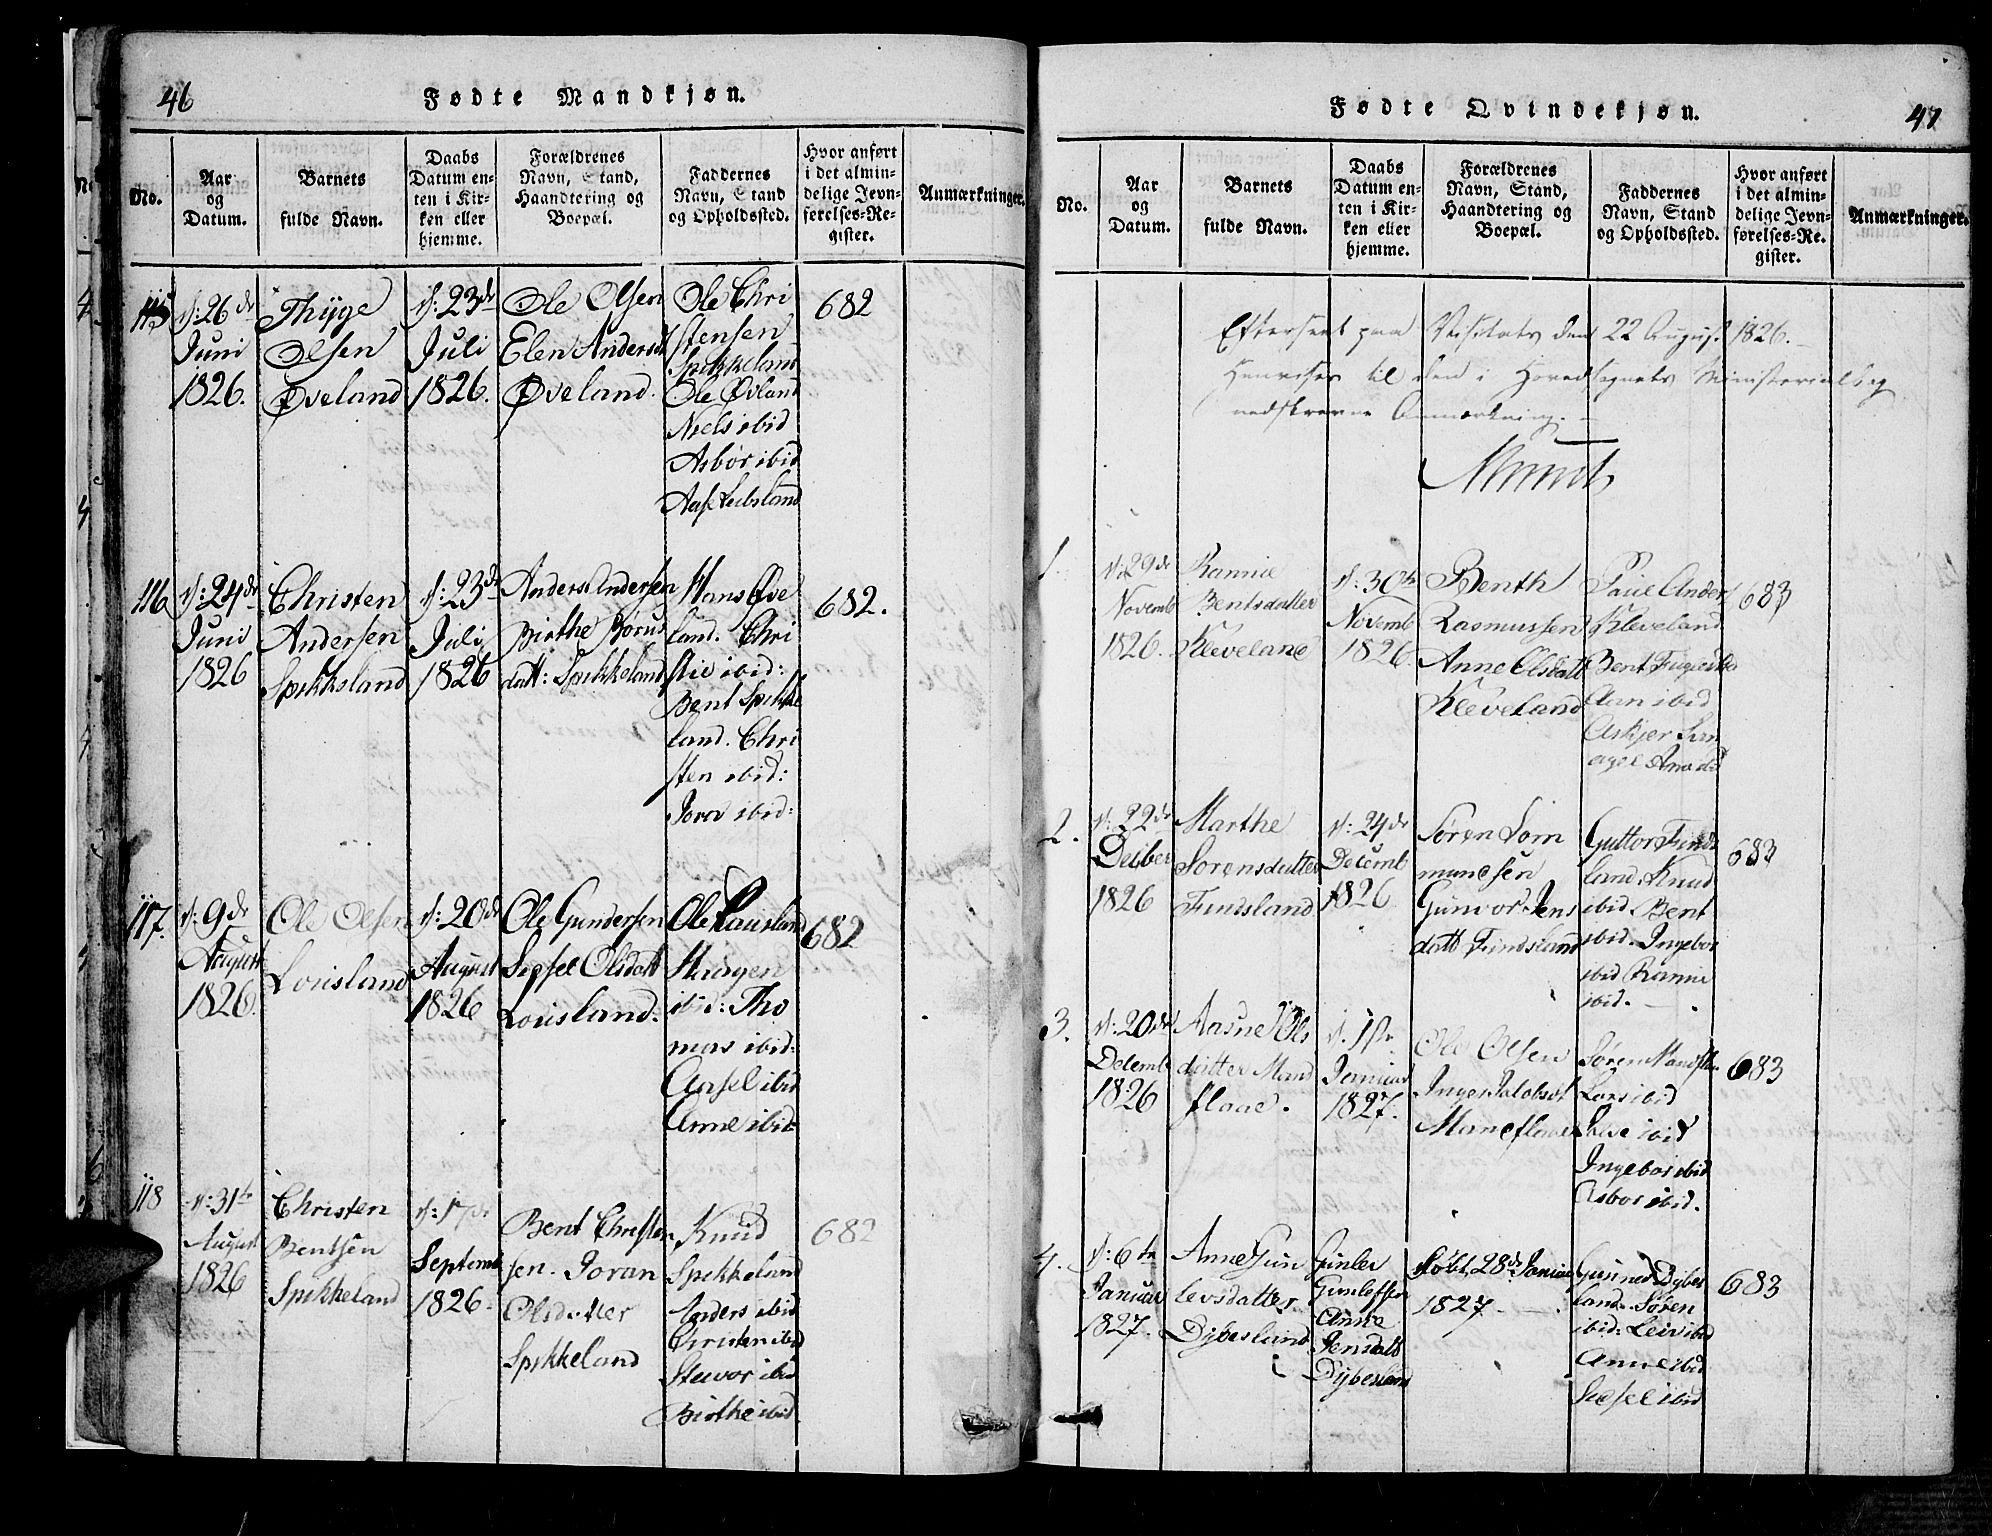 46
Fødte Mandkjøn.
No.
Aar
og
Datum.
Barnets
fulde Navn.
Daabs
Datum en-
ten i Kir-
ken eller
hjemme.
Forældrenes
Navn, Stand,
Haandtering og
Boepæl.
Faddernes
Navn, Stand
og Opholdssted.
Hvor anført
i det almin-
delige Jevn-
førelses-Re-
gister.
Anmærkninger.
115
d: 26de
Juni
1826.
Thyge
Olsen
Øveland
d: 23de
Juli
1826.
Ole Olsen
Elen Andersd
Øveland.
Ole Chri
stensen
Spikkeland
Ole Øvland
Niels ibid
Asbør ibid
Aase Leibsland
682
116
d: 24de
Juni
1826
Christen
Andersen
Spikksland
d: 23de
Juli
1826
Anders Andersen
Birthe Børus
datt: Spikkeland
Hans Øve
land. Chri
stie ibid:
Bent Spikke
land. Chri
sten ibid:
Joran ibid:
682.
117.
d: 9de
August
1826.
Ole Olsen
Lorisland
d: 20de
August
1826
Ole Gundersen
Sissel Olsdatt
Lorisland.
Ole Lausland
Haagen
ibid: Tho
mas ibid:
Aasel ibid
Anne ibid:
682
118
d: 31te
August
1826
Christen
Bentsen
Spikkeland
d: 17de
Septemb
1826.
Bent Christen
sen. Joran
Olsdatter
Spikkeland
Knud
Spikkeland
Anders ibid
Christen ibid
Steivor ibid
Birthe ibid.
682
47
Fødte Qvindekjøn.
No.
Aar
og
Datum.
Barnets
fulde Navn.
Daabs
Datum en-
ten i Kir-
ken eller
hjemme.
Forældrenes
Navn, Stand,
Haandtering og
Boepæl.
Faddernes
Navn, Stand
og Opholdssted.
Hvor anført
i det almin-
delige Jevn-
førelses-Re-
gister.
Anmærkninger.
Efterseet paa Visitats den 22 August 1826.
Henviser til den i Hovedsognets Ministerialbog
nedskrevne Anmærkning.
Munch
1.
d: 29de
Novemb
1826.
Rannie
Bentsdatter
Kleveland
d: 30te
Novemb
1826.
Benth
Rasmussen
Anne Olsdatt
Kleveland
Paul Anders
Kleveland
Bent
ibid
Askjer
683
2.
d: 22de
Deciber
1826
Marthe
Sorensdatter
Findsland
d: 24de
Decemb
1826
Søren Som
mundsen
Gunvor Jens
datt Findsland
Guttor Finds
land. Knud
ibid. Bent
ibid. Ingebor
ibid Ranne
ibid.
683
3.
d: 20de
Decemb
1826
Aasne Ols
datter Mand
flaae.
d: 1ste
Januar
1827.
Ole Olsen
Inger Jacobsd
Maneflaae
Søren Mandfla
Lars ibid
ibid
Ingebor ibid
Asbor ibid.
683
4.
d: 6te
Januar
1827.
Anne Gun
levsdatter
Dybesland
Gunlev
Gunlefsen
Anne
Jensdatt
Dybesland
Døbt 28de Januar
1827.
Gunned Dybes
land. Søren
ibid: Leiv ibid
Anne ibid
Sissel ibid
683